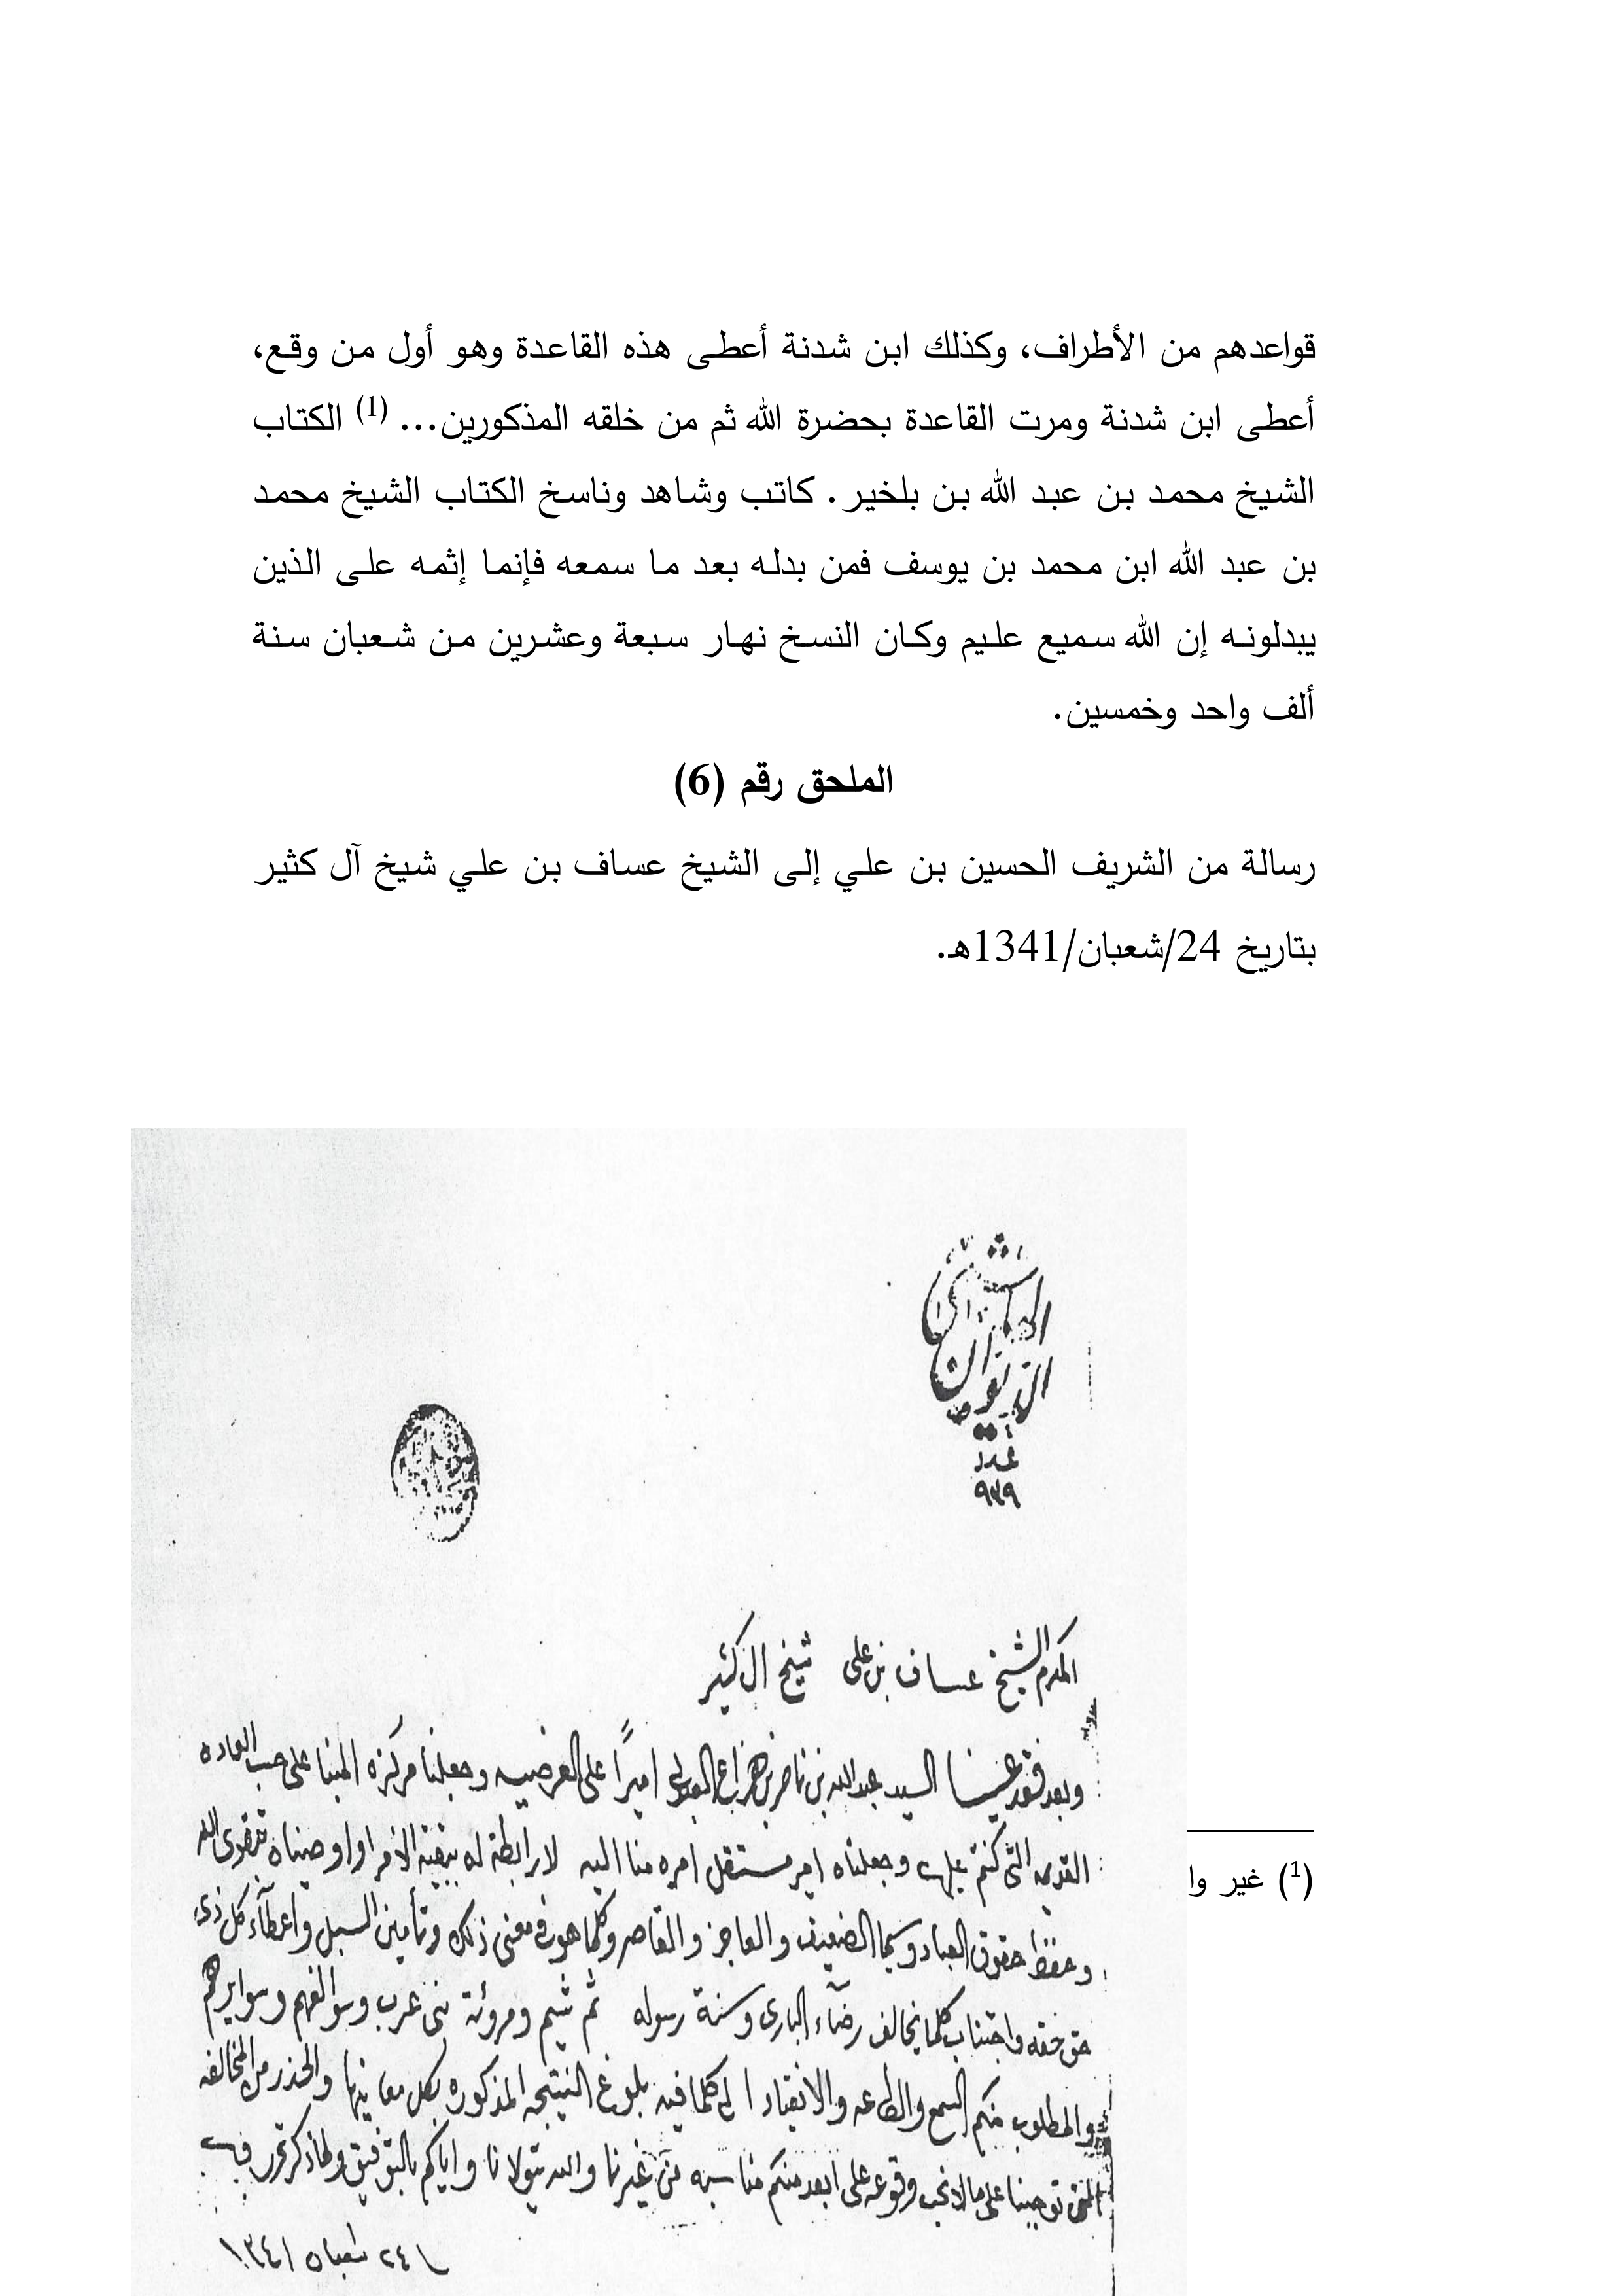 قواعدهم من الأطراف، وكذلك ابن شدنة أعطى هذه القاعدة وهو أول من وقع،
أعطى ابن شدنة ومرت القاعدة بحضرة الله ثم من خلقه المذكورين... (1) الكتاب
الشيخ محمد بن عبد الله بن بلخير. كاتب وشاهد وناسخ الكتاب الشيخ محمد
بن عبد الله ابن محمد بن يوسف فمن بدله بعد ما سمعه فإنما إثمه على الذين
يبدلونه إن الله سميع عليم وكان النسخ نهار سبعة وعشرين من شعبان سنة
ألف واحد وخمسين.
الملحق رقم (6)
رسالة من الشريف الحسين بن علي إلى الشيخ عساف بن علي شيخ آل كثير
بتاريخ 24/شعبان/1341هـ.
الديوان الهاشمي
عدد
٩٣٩
المكرم الشيخ عساف بن علي شيخ ال كثير
وبعد فقد عينا السيد عبدالله بن ناصر بن هزاع العبدلي اميرًا على العرضيه وجعلنا مركزه المبنا على حسب العاده
القديمه التي كنتم عليها وجعلناه امير مستقل امره منا اليه لا رابطة له ببقية الامراء واوصيناه بتقوى الله
وحفظ حقوق العباد وسيما الضعيف والعاجز والقاصر وكلما هو في معنى ذلك وتأمين السبل واعطآء كل ذي
حق حقه واجتناب كلما يخالف رضآء الباري وسنة رسوله ثم شيم ومروئة بني عرب وسوالفهم وسوايرهم
والمطلوب منكم السمع والطاعه والانقياد الى كلما فيه بلوغ النتيجه المذكوره بكل معانيها والحذر من المخالفه
توجبنا على ما لا نحب وقوعه على ابعد منكم مناسبه من غيرنا والله يتولانا واياكم بالتوفيق ولماذكر تحرر في
٢٤ شعبان ١٣٤١
(1) غير